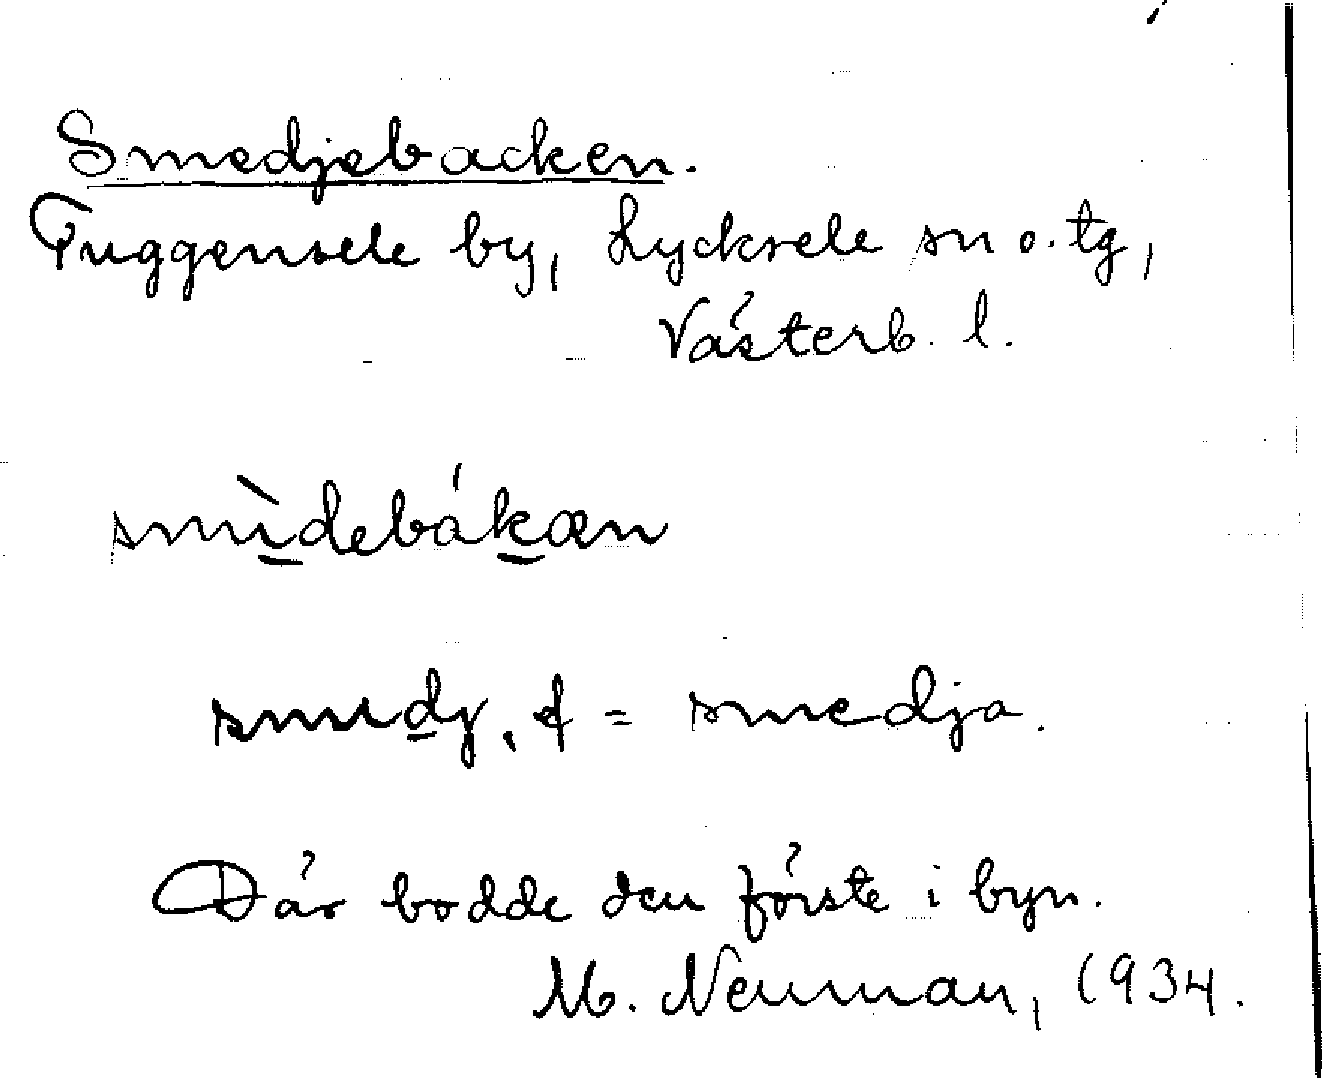 Smedjebacken.
Tuggensele by, Lycksele sn o. tg,
Västerb. l.
smìdebákæn
smidj, f = smedja.
Där bodde den förste i byn.
M. Neuman, 1934.